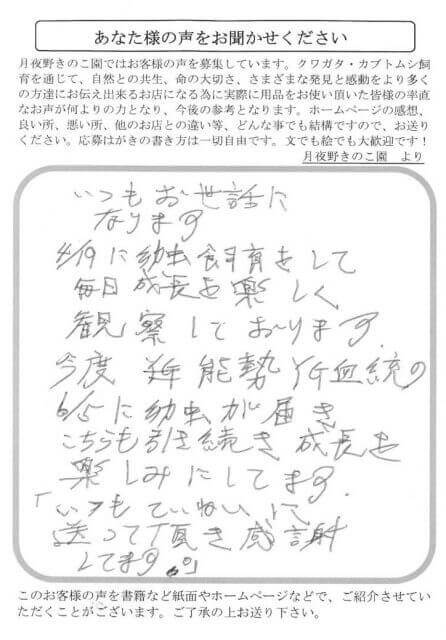 あなた様の声をお聞かせください
月夜野きのこ園ではお客様の声を募集しています。クワガタ・カブトムシ飼
育を通じて、自然との共生、命の大切さ、さまざまな発見と感動をより多く
の方達にお伝え出来るお店になる為に実際に用品をお使い頂いた皆様の率直
なお声が何よりの力となり、今後の参考となります。ホームページの感想、
良い所、悪い所、他のお店との違い等、どんな事でも結構ですので、お送り
ください。応募はがきの書き方は一切自由です。文でも絵でも大歓迎です！
月夜野きのこ園 より
いつもお世話に
なります
4/19に幼虫飼育をして
毎日成長を楽しく
観察しております.
今度 能勢YG血統の
6/5に幼虫が届き
こちらも引き続き成長を
楽しみにしてます.
「いつもていねいに
送って頂き感謝
してます。」
このお客様の声を書籍など紙面やホームページなどで、ご紹介させてい
ただくことがございます。ご了承の上お送り下さい。